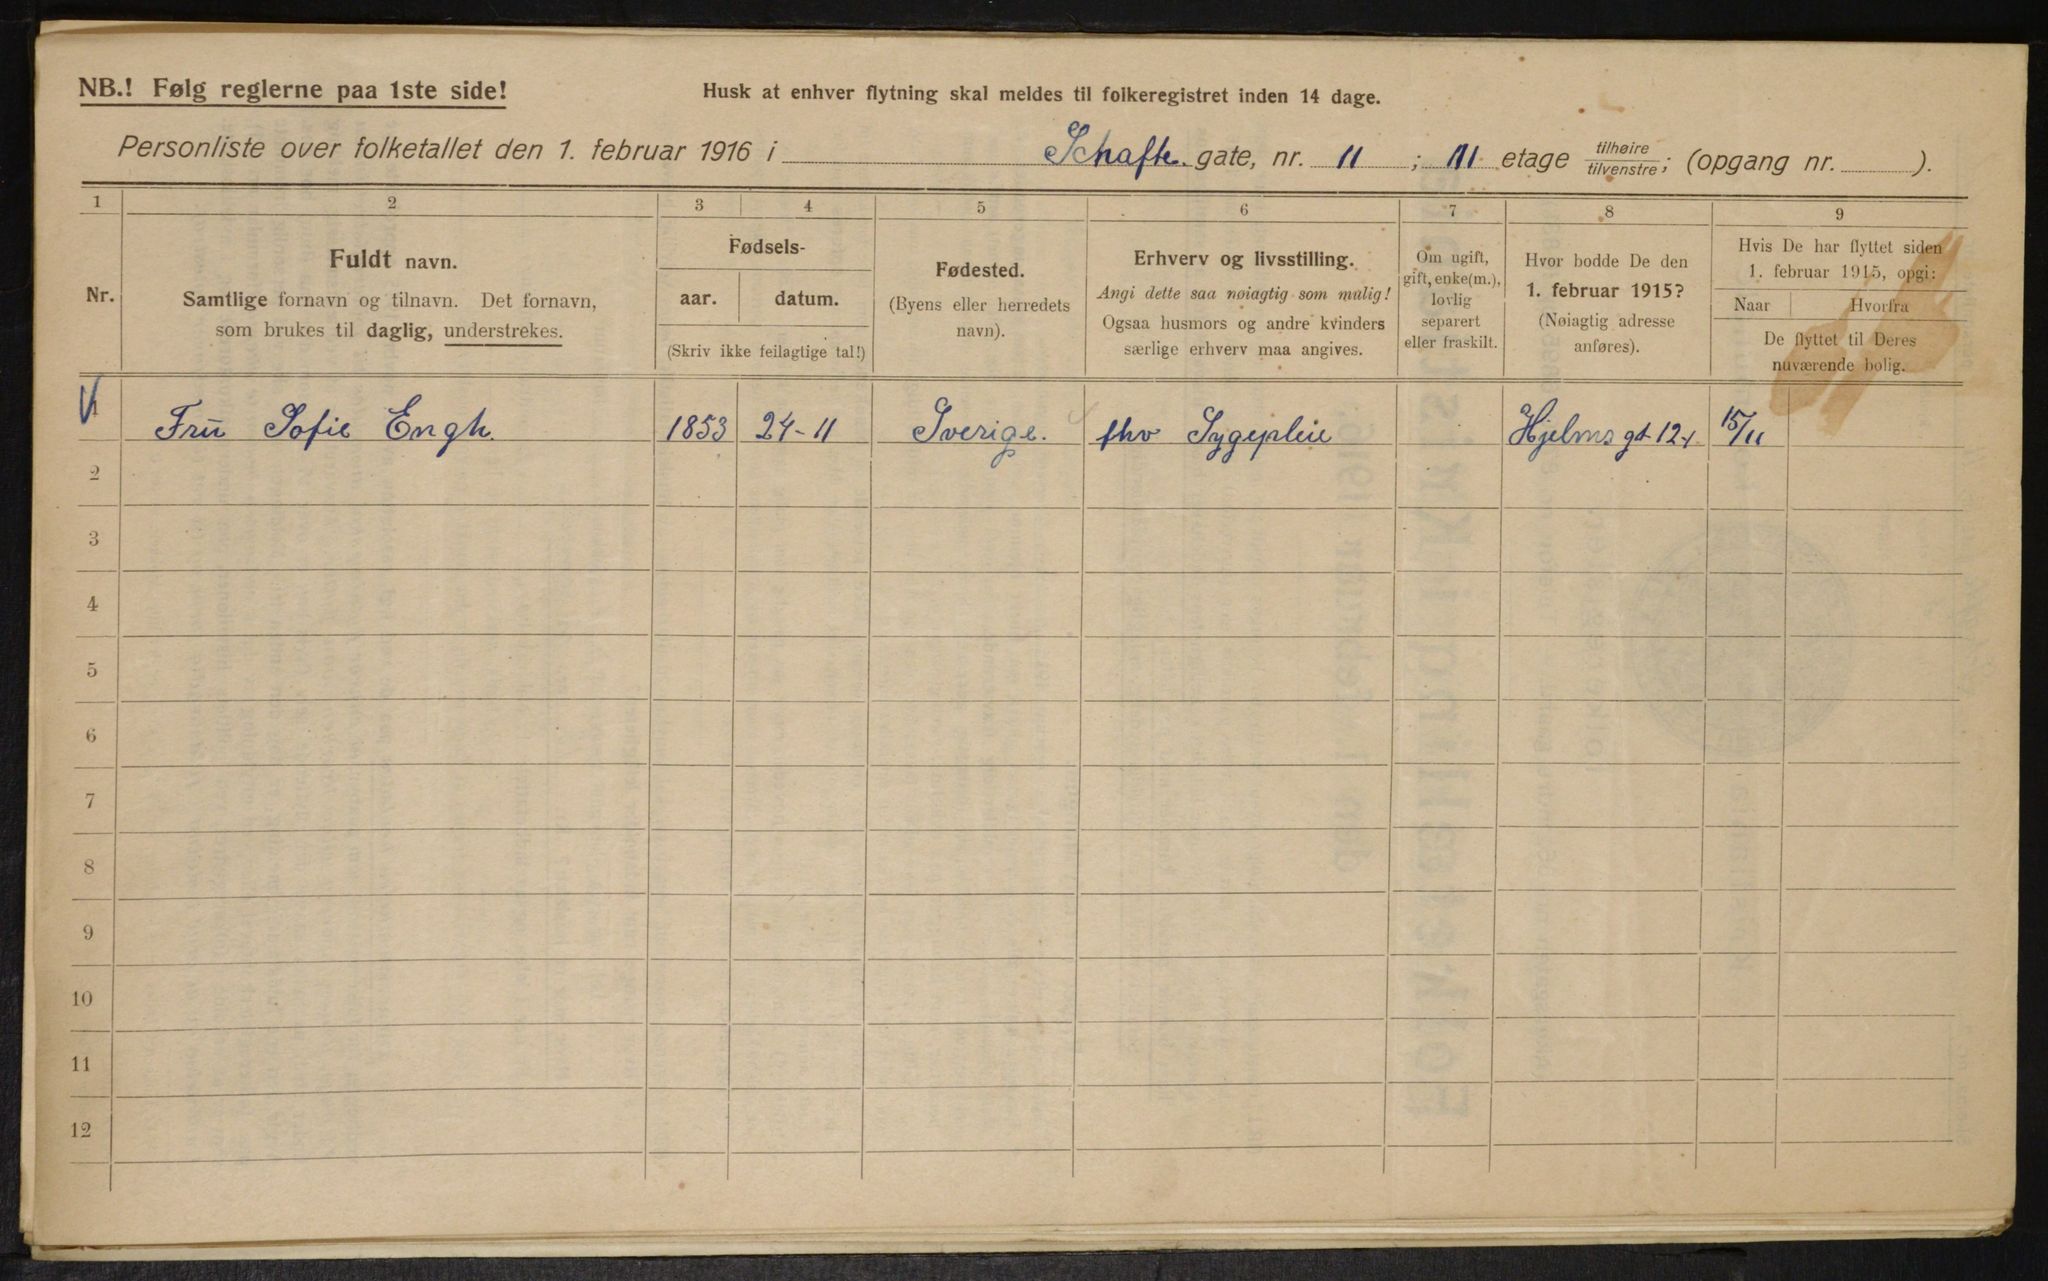 NB.! Følg reglerne paa 1ste side!
Husk at enhver flytning skal meldes til folkeregistret inden 14 dage.
Personliste over folketallet den 1. februar 1916 i Schafte gate, nr. 11 ; III etage tilhøire/tilvenstre; (opgang nr. ).
1 2 3 4 5 6 7 8 9
Nr.
Fuldt navn.
Samtlige fornavn og tilnavn. Det fornavn,
som brukes til daglig, understrekes.
Fødsels-
aar. datum.
(Skriv ikke feilagtige tal!)
Fødested.
(Byens eller herredets
navn).
Erhverv og livsstilling.
Angi dette saa nøiagtig som mulig!
Ogsaa husmors og andre kvinders
særlige erhverv maa angives.
Om ugift,
gift, enke(m.),
lovlig
separert
eller fraskilt.
Hvor bodde De den
1. februar 1915?
(Nøiagtig adresse
anføres).
Hvis De har flyttet siden
1. februar 1915, opgi:
Naar Hvorfra
De flyttet til Deres
nuværende bolig.
1 Fru Sofie Engh. 1853 24-11 Sverige. fhv Sygepleie Hjelms gt 12 15/11
2
3
4
5
6
7
8
9
10
11
12